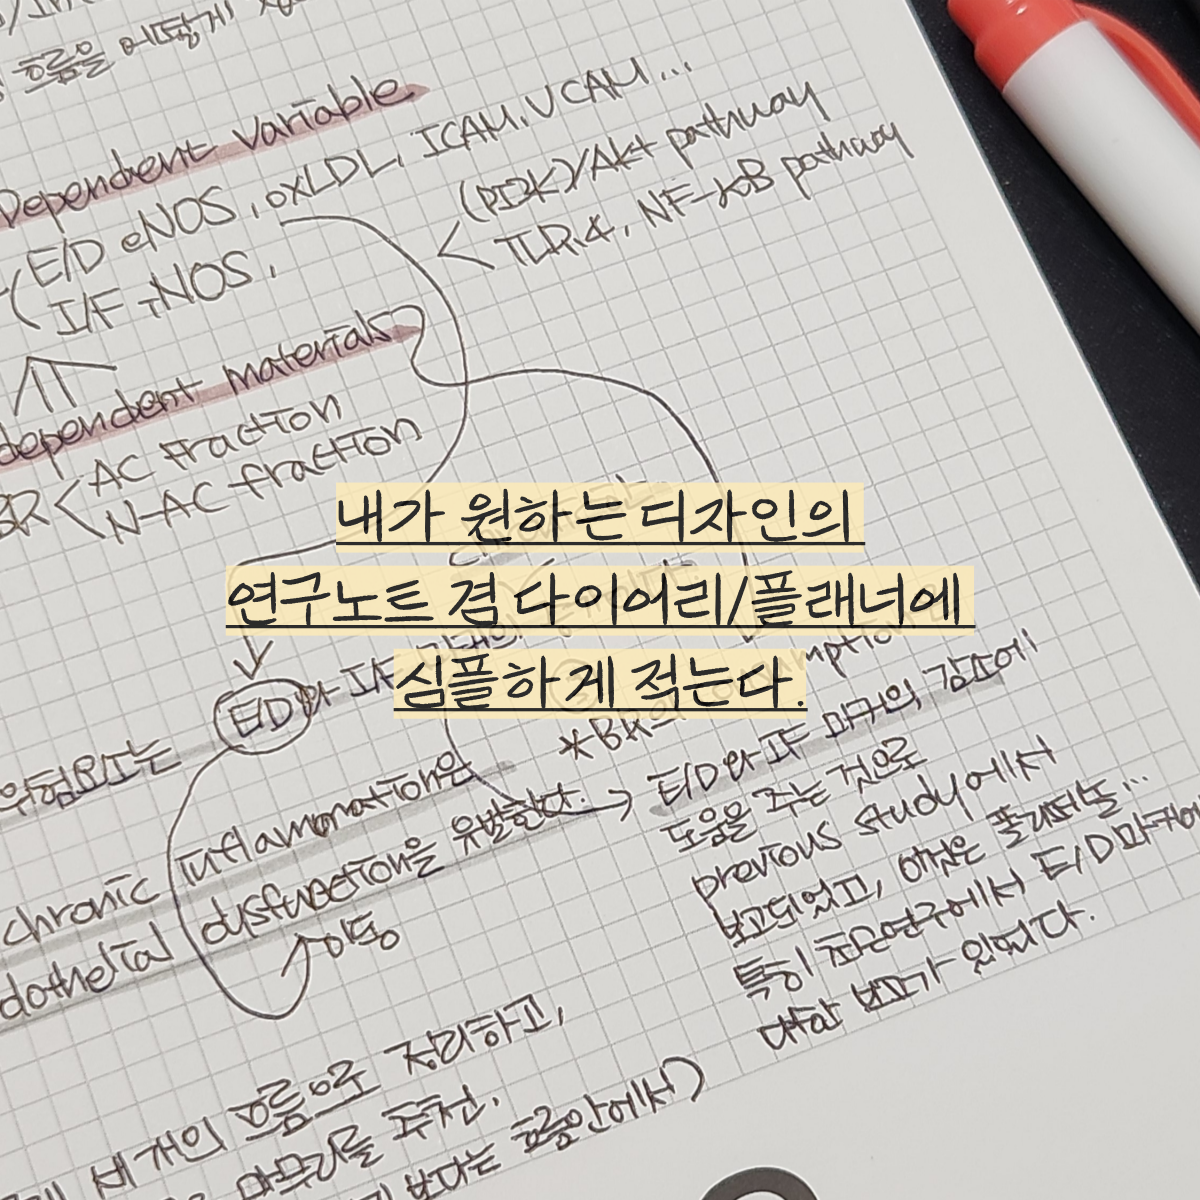 흐름을 어떻게
Dependent Variable
E/D eNOS, oxLDL, ICAM, VCAM...
I/F iNOS,
(PI3K)/Akt pathway
TLR4, NF-κB pathway
dependent materials
BR < AC fraction
N-AC fraction
내가 원하는 디자인의
연구노트 겸 다이어리/플래너에
심플하게 적는다.
위험요소는 E/D와 I/F
chronic inflammation은
dothelial dysfunction을 유발한다.
이동
E/D와 I/F 마커의 감소에
도움을 주는 것으로
previous study에서
보고되었고, 이것은 폴리페놀...
특히 최근연구에서 E/D마커에
대한 보고가 있었다.
세개의 흐름으로 정리하고,
마무리를 추천.
보다는 흐름안에서)